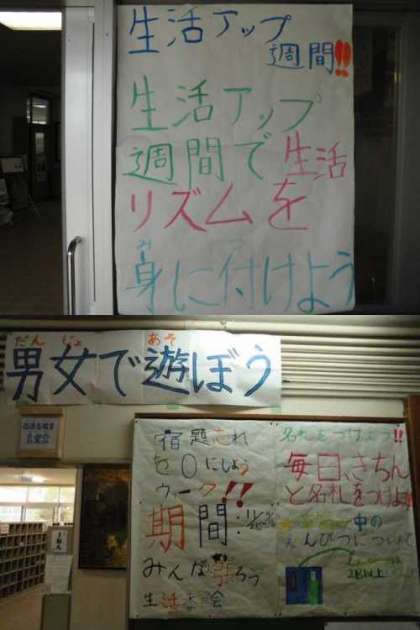 生活アップ
週間!!
生活アップ
週間で生活
リズムを
み
身に付けよう
だん じょ あそ
男女で遊ぼう
宿題忘れ
を0にしよう
ウーク!!
期間:
みんな
生活
名札をつけよう!!
毎日、きちん
と名札をつけよ
中の
えんぴつについて
2B以上